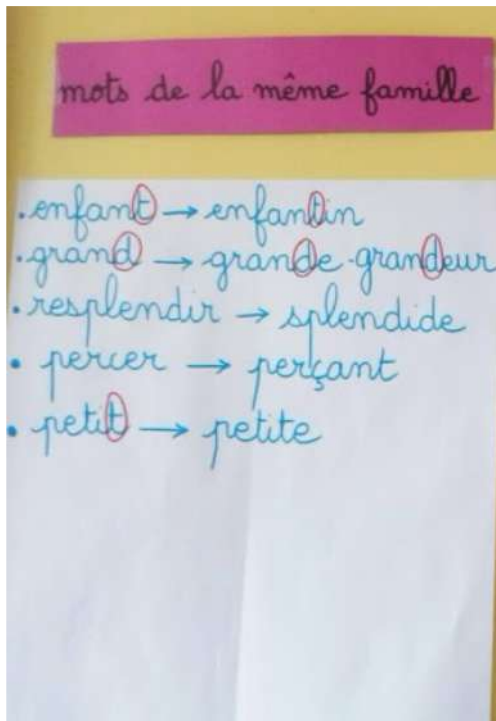 mots de la même famille
• enfant → enfantin
• grand → grande - grandeur
• resplendir → splendide
• percer → perçant
• petit → petite